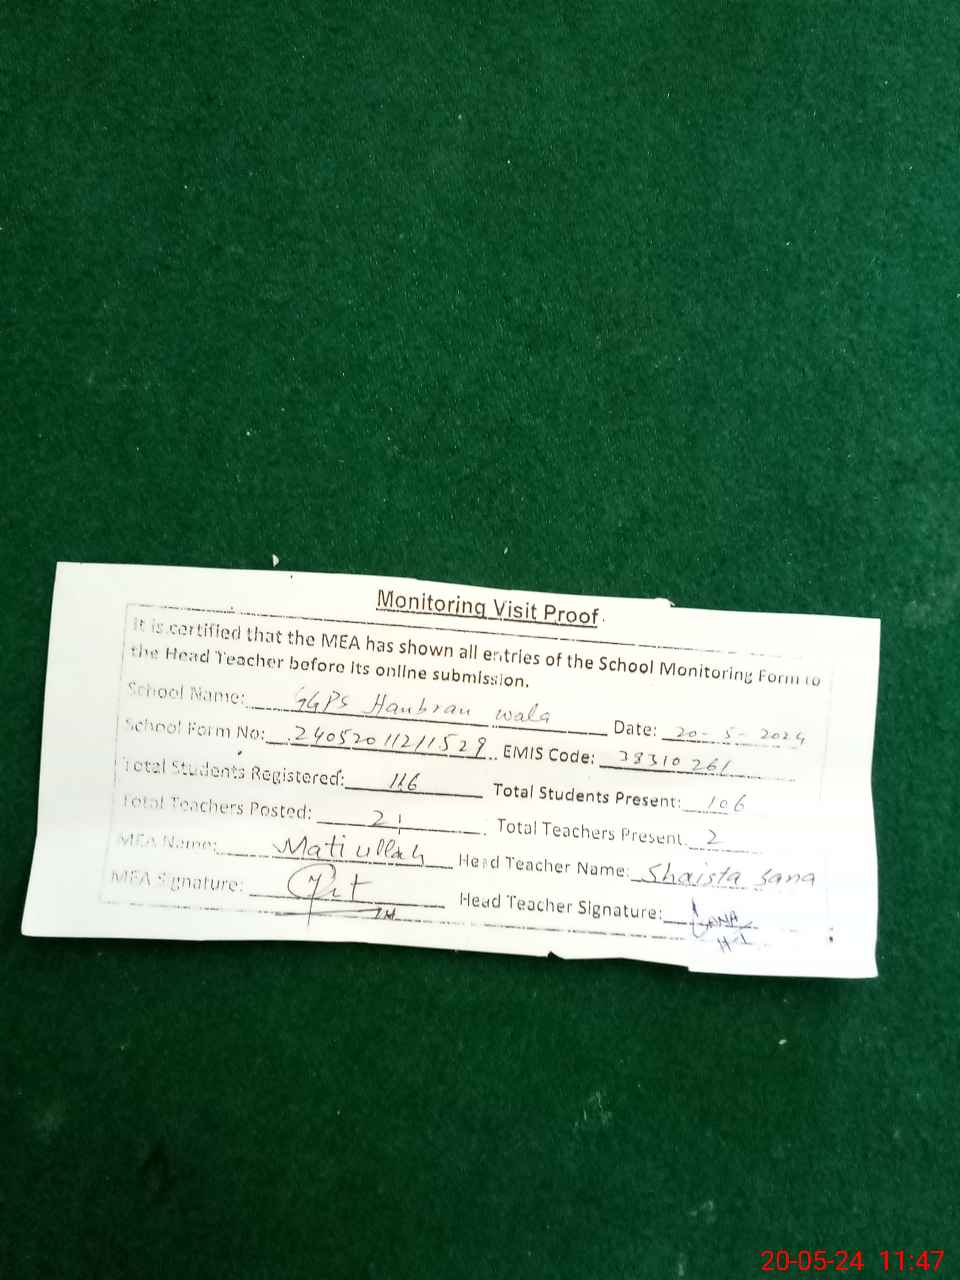 Monitoring Visit Proof
It is certified that the MEA has shown all entries of the School Monitoring Form to
the Head Teacher before its online submission.
School Name: GGPS Hanbran wala Date: 20-5-2024
School Form No: 240520112/1529 EMIS Code: 38310261
Total Students Registered: 116 Total Students Present: 106
Total Teachers Posted: 2 Total Teachers Present 2
MEA Name: Matiullah Head Teacher Name: Shaista Sana
MEA Signature: Head Teacher Signature: SANA
20-05-24 11:47